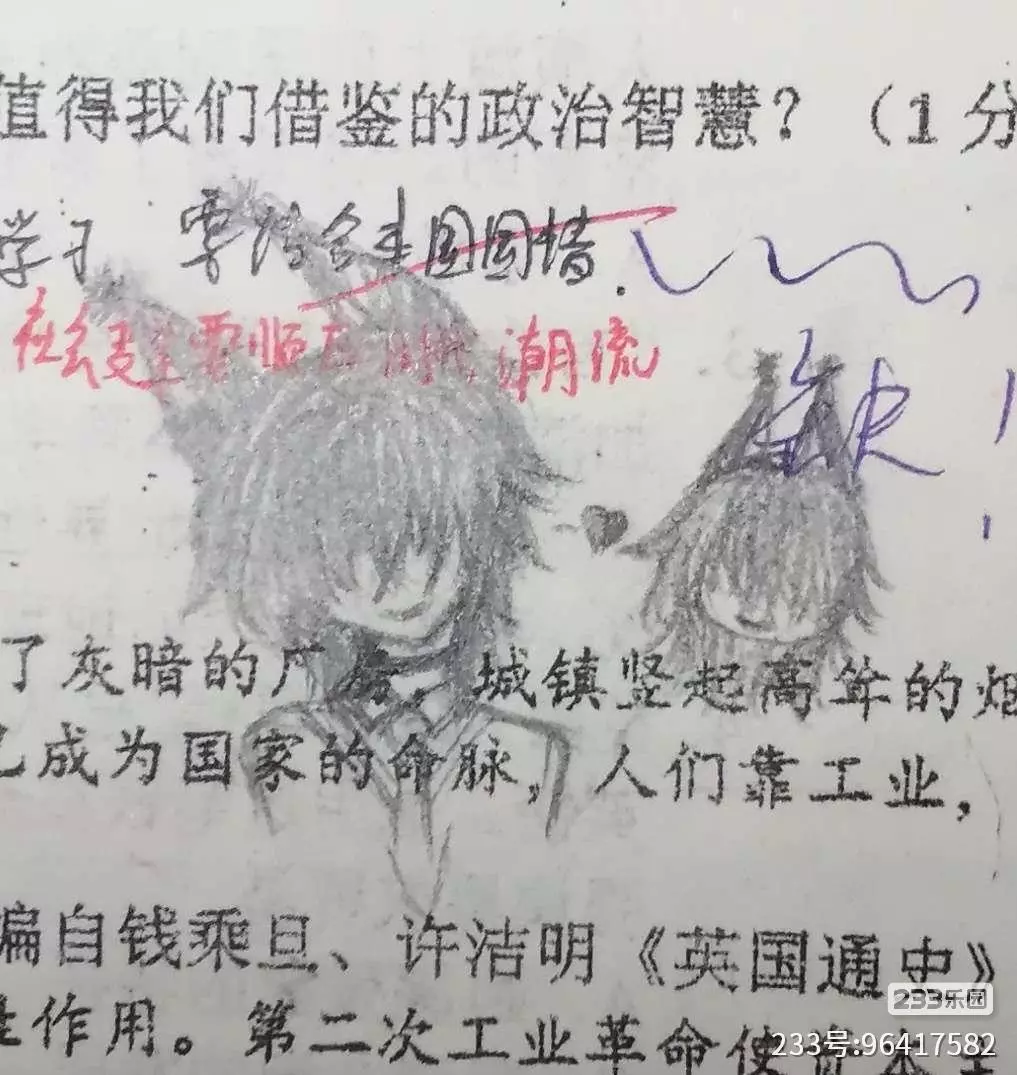 值得我们借鉴的政治智慧？（1分
学习
在会支主要顺应时代潮流
缺史！
了灰暗的厂房，城镇竖起高耸的烟
已成为国家的命脉，人们靠工业，
编自钱乘旦、许洁明《英国通史》
性作用。第二次工业革命使资本主
233乐园
233号:96417582